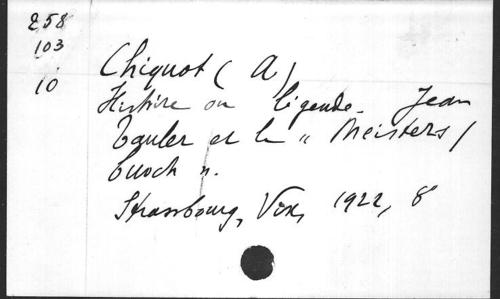 258
103
10
Chiquot (A)
Histoire ou légende. Jean
Tauler et le "Meisters /
buoch".
Strasbourg, Vix, 1922, 8°